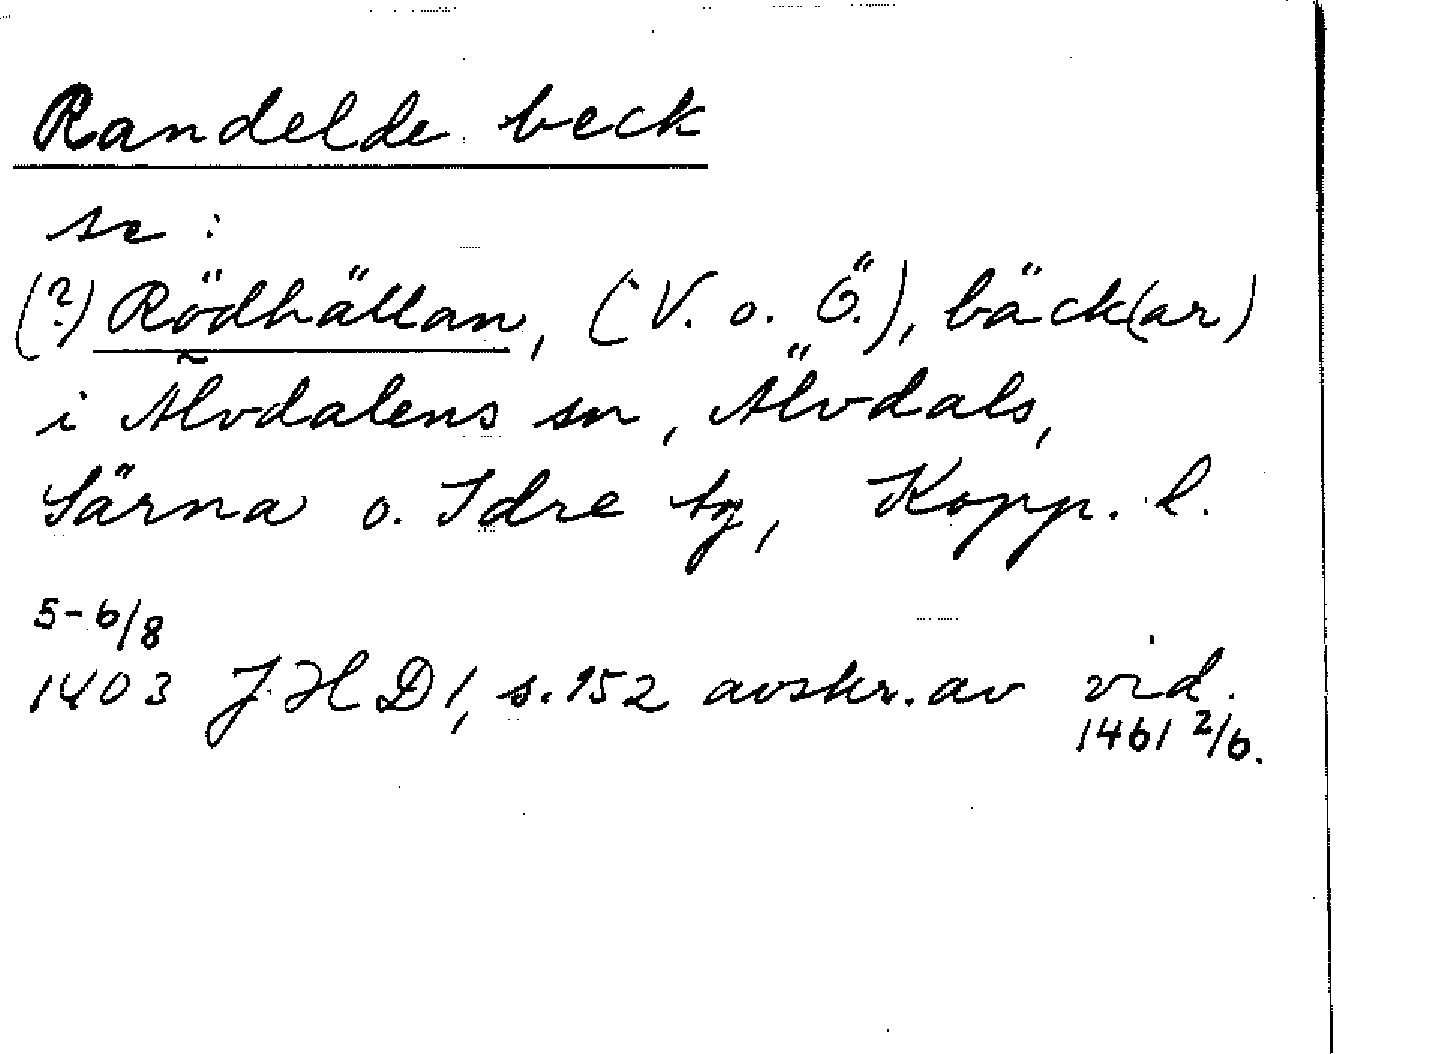 Randelde beck
se:
(?) Rödhällan, (V. o. Ö.), bäck(ar)
i Älvdalens sn, Älvdals,
Särna o. Idre tg, Kopp. l.
5-6/8
1403 JHD 1, s. 152 avskr. av vid.
1461 2/6.